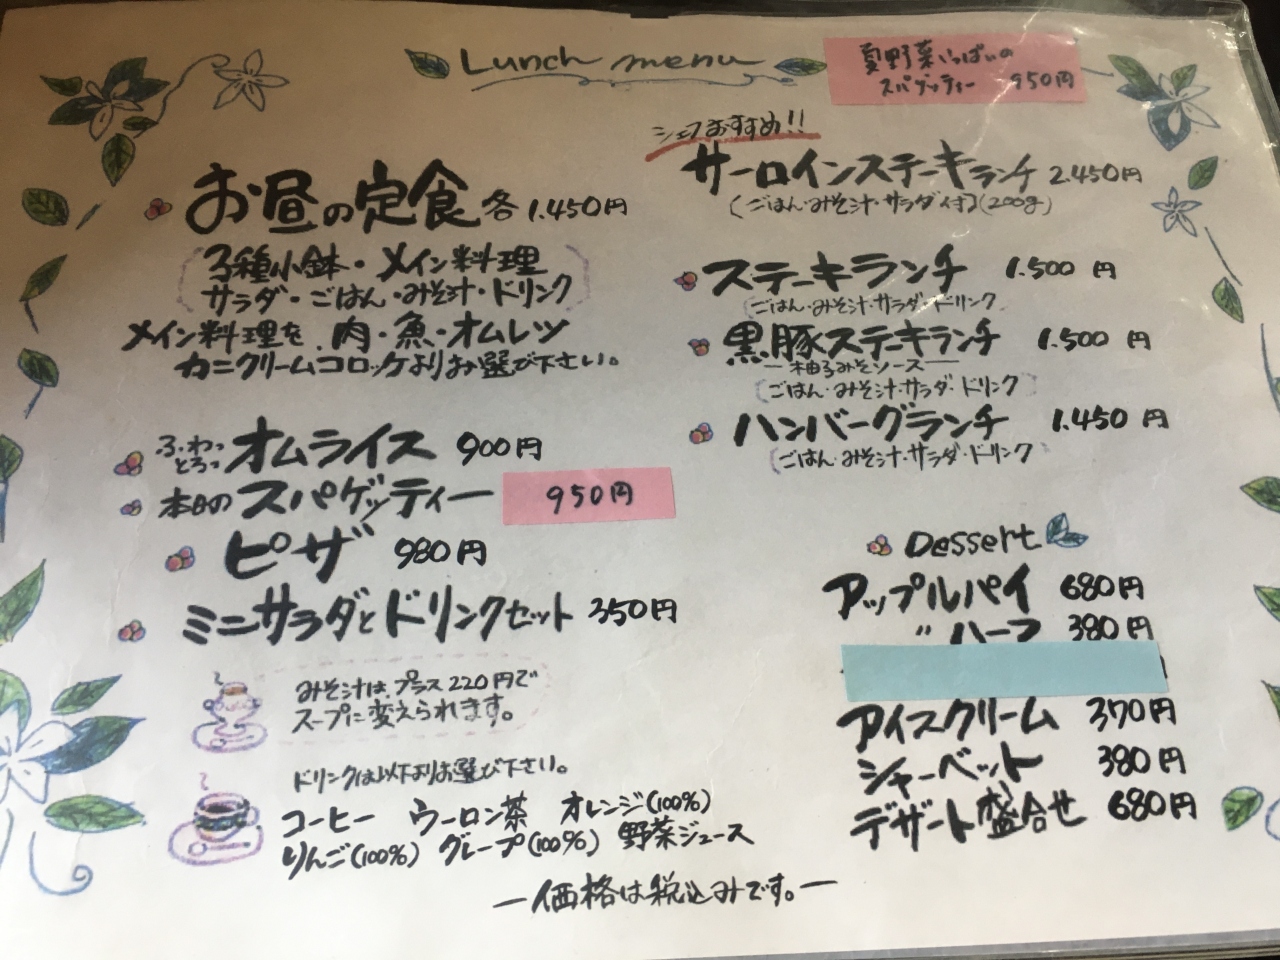 Lunch menu
夏野菜いっぱいの
スパゲッティー 950円
お昼の定食 各 1.450円
3種小鉢・メイン料理
サラダ・ごはん・みそ汁・ドリンク
メイン料理を 肉・魚・オムレツ
カニクリームコロッケよりお選び下さい。
ふわっ
とろっ オムライス 900円
本日の スパゲッティー 950円
ピザ 980円
ミニサラダとドリンクセット 350円
みそ汁は、プラス220円で
スープに変えられます。
ドリンクは以下よりお選び下さい。
コーヒー ウーロン茶 オレンジ(100%)
りんご(100%) グレープ(100%) 野菜ジュース
シェフおすすめ!!
サーロインステーキランチ 2.450円
(ごはん・みそ汁・サラダ付)(200g)
ステーキランチ 1.500円
ごはん・みそ汁・サラダ・ドリンク
黒豚ステーキランチ 1.500円
ー柚子みそソースー
ごはん・みそ汁・サラダ・ドリンク
ハンバーグランチ 1.450円
ごはん・みそ汁・サラダ・ドリンク
Dessert
アップルパイ 680円
〃 ハーフ 380円
アイスクリーム 370円
シャーベット 380円
デザート盛合せ 680円
ー価格は税込みです。ー